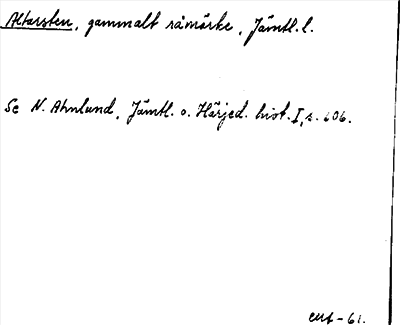 Altarsten, gammalt råmärke, Jämtl. l.
Se N. Ahnlund, Jämtl. o. Härjed. hist. I, s. 606.
-61.